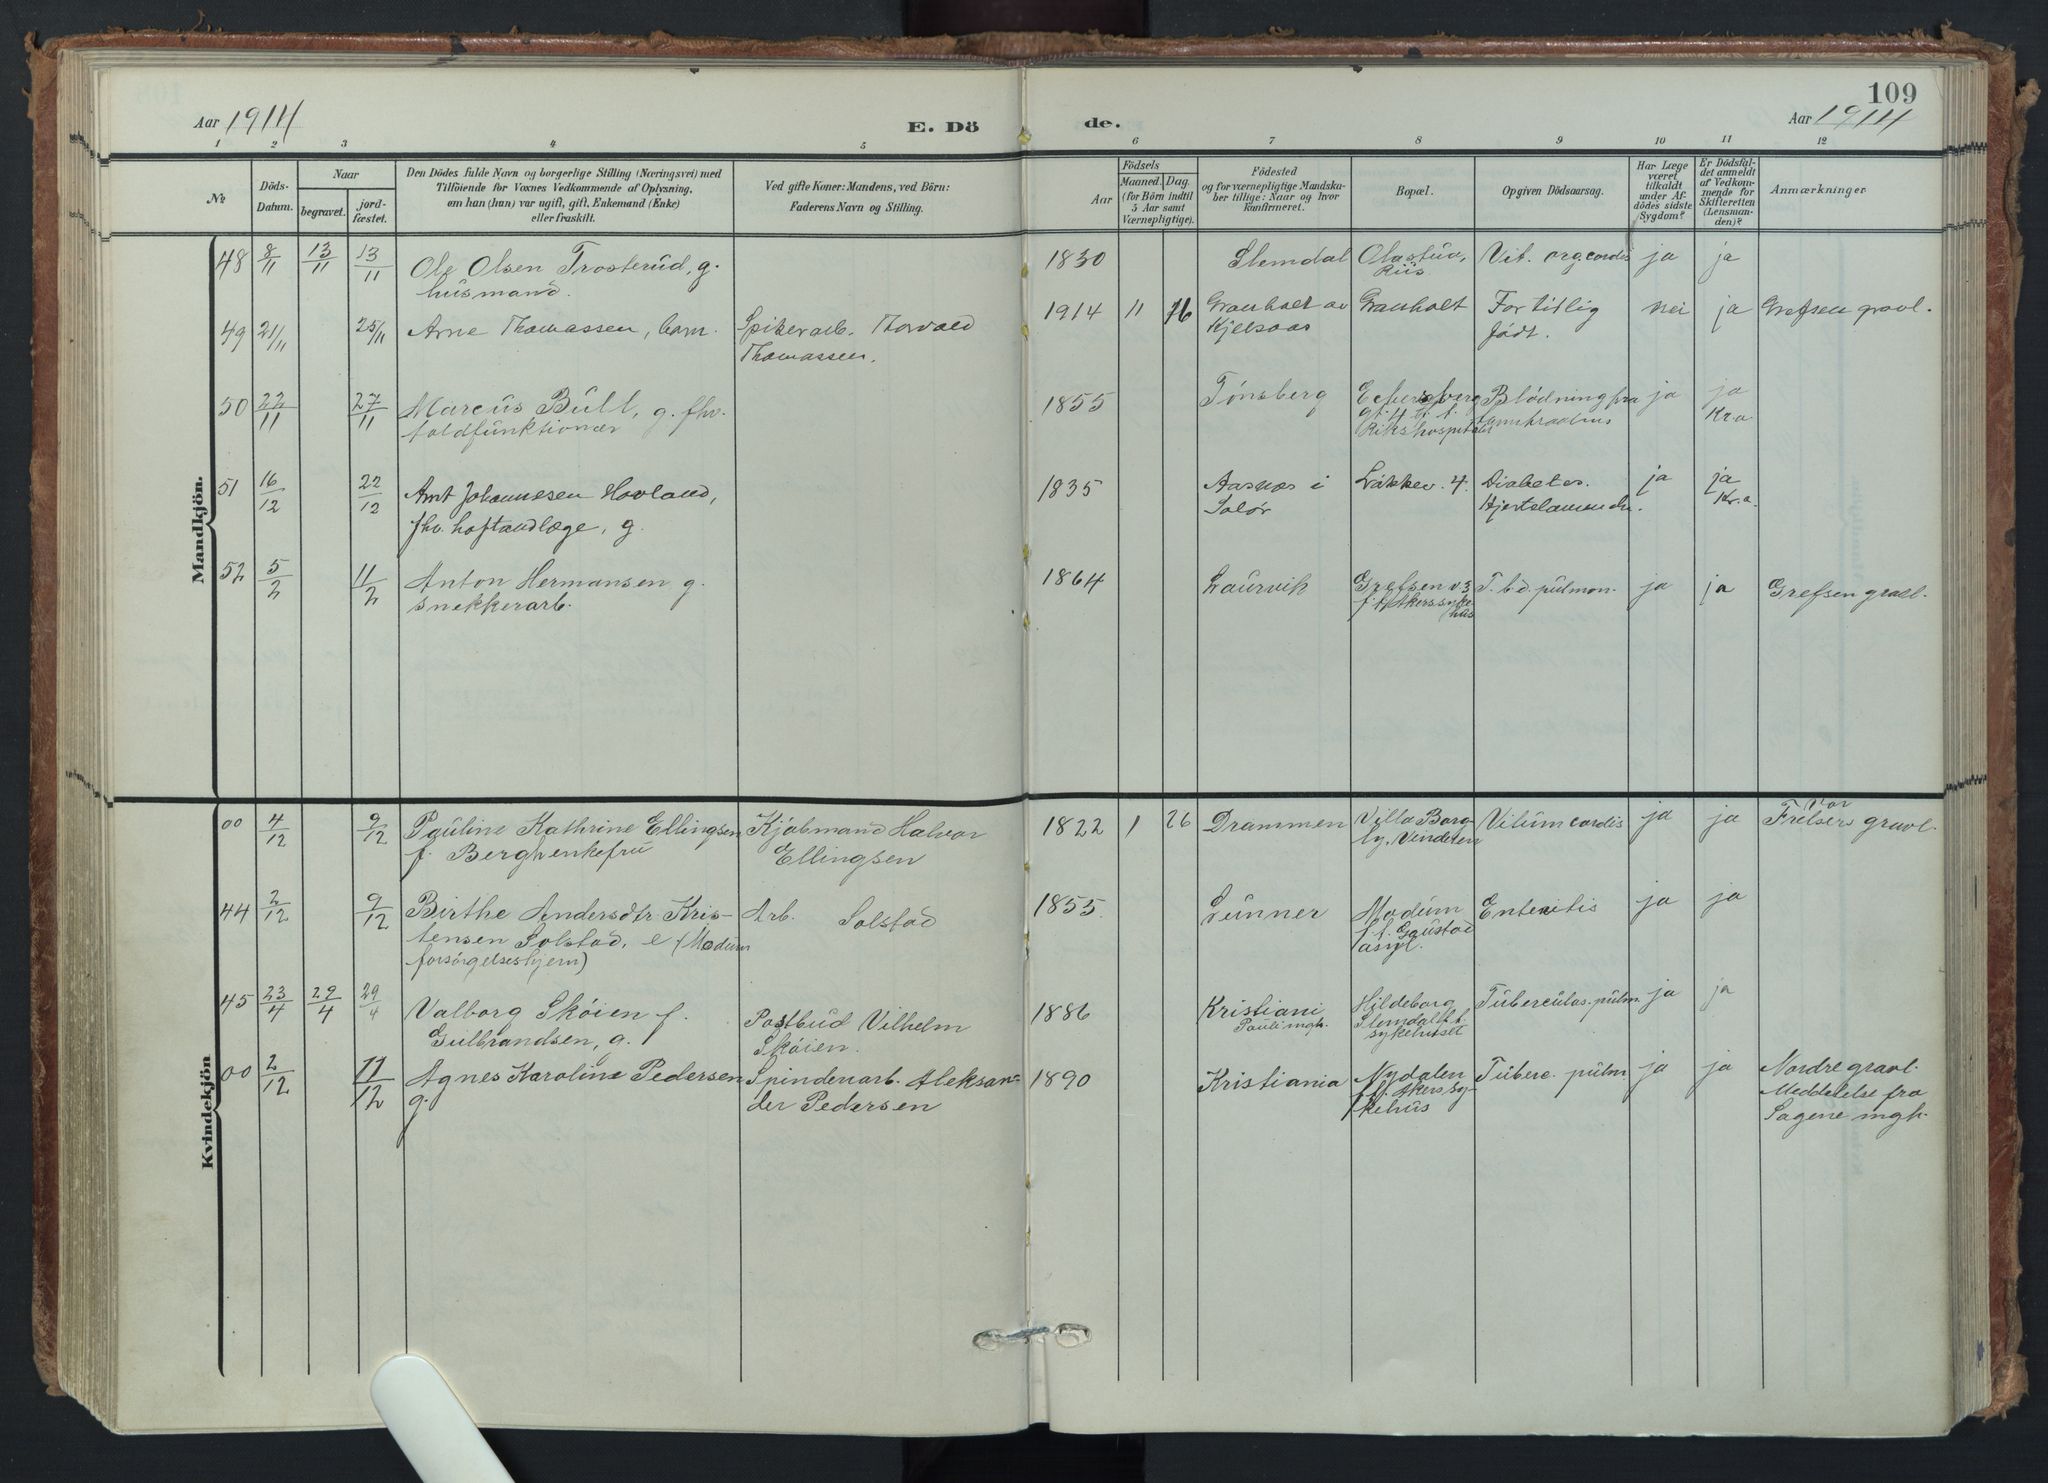 Aar 1914
E. Döde.
109
Aar 1914
1 2 3 4 5 6 7 8 9 10 11 12
№
Döds-Datum.
Naar
begravet.
jord-fæstet.
Den Dödes fulde Navn og borgerlige Stilling (Næringsvei) med
Tilföiende for Voxnes Vedkommende af Oplysning,
om han (hun) var ugift, gift, Enkemand (Enke)
eller fraskilt.
Ved gifte Koner: Mandens, ved Börn:
Faderens Navn og Stilling.
Födsels
Aar
Maaned. Dag.
(for Börn indtil
5 Aar samt
Værnepligtige).
Födested
og for værnepligtige Mandska-
ber tillige: Naar og hvor
konfirmeret.
Bopæl.
Opgiven Dödsaarsag.
Har Læge
været
tilkaldt
under Af-
dödes sidste
Sygdom?
Er Dödsfal-
det anmeldt
af Vedkom-
mende for
Skifteretten
(Lensman-
den)?
Anmærkninger
Mandkjön.
48 8/11 13/11 13/11 Ole Olsen Trosterud, g. 1830 Slemdal Olastua, Vit. org. cordis ja ja
husmand. Riis
49 21/11 25/11 Arne Thomassen, barn. Spikerarb. Thorvald 1914 11 16 Grauholt av Grauholt For titlig nei ja Grefsen gravl.
Thomassen. Kjelsaas født.
50 22/11 27/11 Marcus Bull, g. fhv. 1855 Tønsberg Blødning fra ja ja
toldfunktionær gt. 4 Rikshospitalet Kr.a
51 16/12 22/12 Arnt Johannesen Hovland, 1835 Aasnes i Løkkev. 4. Diabetes. ja ja
fhv. hoftandlæge, g. Solør Kr.a.
52 5/2 11/2 Anton Hermansen g. 1864 Laurvik Grefsen v. 3 T. b.d. pulmon. ja ja Grefsen gravl.
snekkerarb. f. t. Akers syke-
hus
Kvindekjön
00 4/12 9/12 Pauline Kathrine Ellingsen Kjøbmand Halvor 1822 1 26 Drammen Villa Borg- Vitium cordis ja ja Vor
Frelsers gravl.
f. Bergh enkefru Ellingsen Vinderen
44 2/12 9/12 Birthe Andersdtr. Kris- Arb. Solstad 1855. Lunner Modum Enteritis ja ja
tensen Solstad, e (Modum f. t. Gaustad
forsørgelseshjem) asyl.
45 23/4 29/4 29/4 Valborg Skøien f. Postbud Vilhelm 1886 Kristiani Hildeborg Tuberculos. pulm. ja ja
Gulbrandsen, g. Skøien. Pauli mgh. Slemdal f. t.
sykehuset
00 2/12 11/12 Agnes Karoline Pedersen Spinderiarb. Aleksan- 1890 Kristiania Nydalen Tuberc. pulm ja ja Nordre gravl.
g. der Pedersen f. t. Akers sy- Meddelelse fra
kehus Sagene mgh.